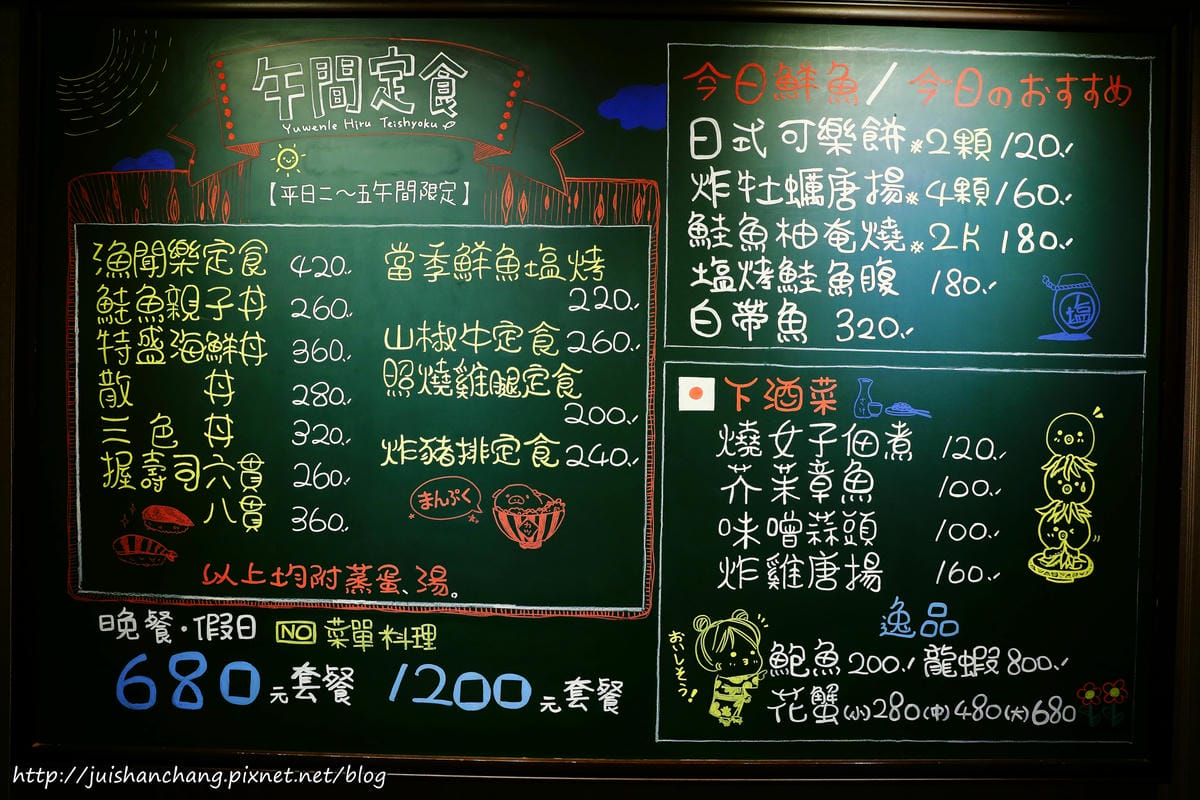 午間定食
Yuwenle Hiru Teishyoku
【平日二～五午間限定】
漁聞樂定食 420.
鮭魚親子丼 260.
特盛海鮮丼 360.
散 丼 280.
三色丼 320.
握壽司六貫 260.
八貫 360.
當季鮮魚塩烤
220.
山椒牛定食 260.
照燒雞腿定食
200.
炸豬排定食 240.
まんぷく
カツ
以上均附蒸蛋、湯。
晚餐・假日 NO 菜單料理
680元套餐 1200元套餐
今日鮮魚/今日のおすすめ
日式可樂餅*2顆 120.
炸牡蠣唐揚*4顆 160.
鮭魚柚奄燒*2片 180.
塩烤鮭魚腹 180.
白帶魚 320.
塩
下酒菜
燒女子佃煮 120.
芥茉章魚 100.
味噌蒜頭 100.
炸雞唐揚 160.
逸品
おいしそう!
鮑魚 200. 龍蝦 800.
花蟹(小)280(中)480(大)680
http://juishanchang.pixnet.net/blog